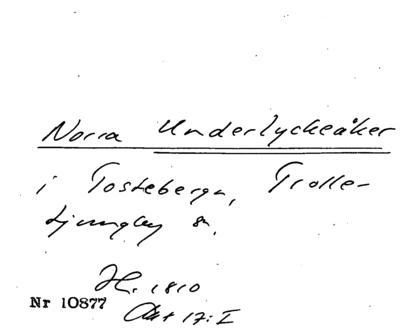 Norra Underlyckeåker
i Tosteberga, Trolle-
Ljungby sn.
H. 1810
Nr 10877
Akt 17: I